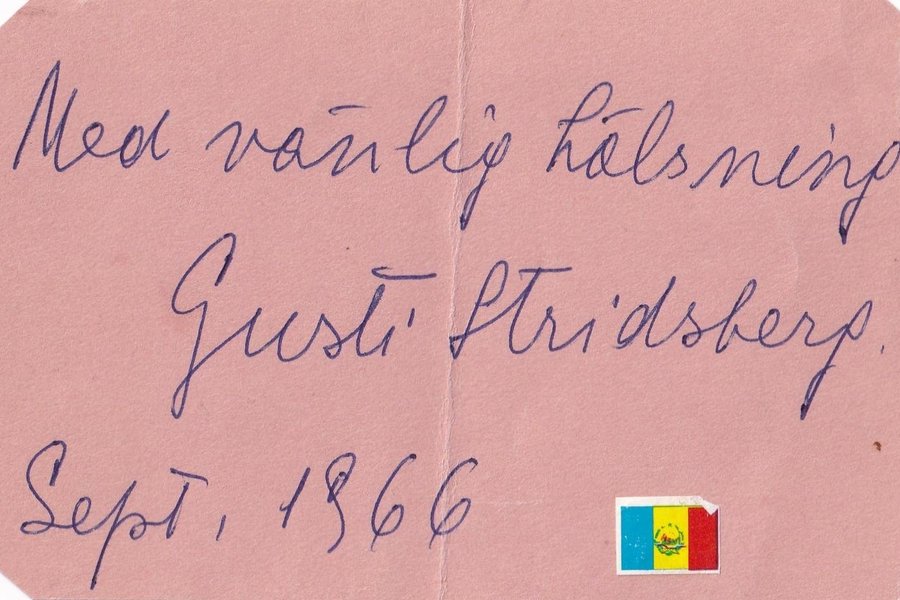 Med vänlig hälsning
Gusti Stridsberg.
Sept, 1966